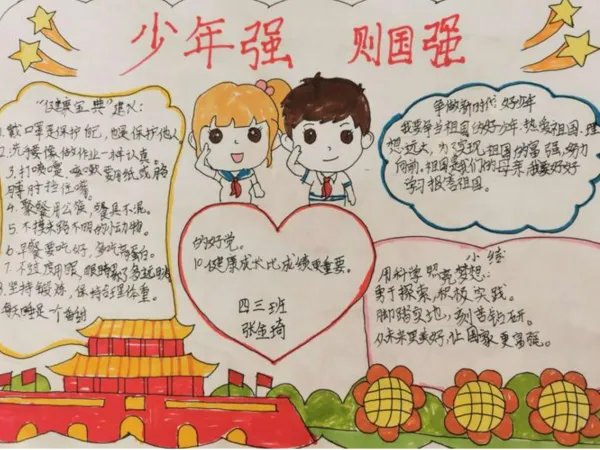 少年强 则国强
"健康宝典"建议:
1.戴口罩是保护自己,也是保护他人
2.洗手像做作业一样认真。
3.打喷嚏 咳嗽要用纸或胳
膊肘挡住嘴。
4.聚餐用公筷,餐具不混。
5.不摸来路不明的小动物。
6.早餐要吃好,多吃高蛋白。
7.不过度用眼,眼睛累了多远眺
坚持锻炼,保持合理体重。
的好觉。
10.健康成长比成绩更重要。
四三班
张金琦
争做新时代好少年
我要争当祖国的好少年.热爱祖国.理
想远大,为实现祖国的富强努力
向前。祖国是我们的母亲,我要好好
学习报答祖国。
小结
用科学照亮梦想:
勇于探索,积极实践。
脚踏实地,刻苦钻研。
让国家更富强。